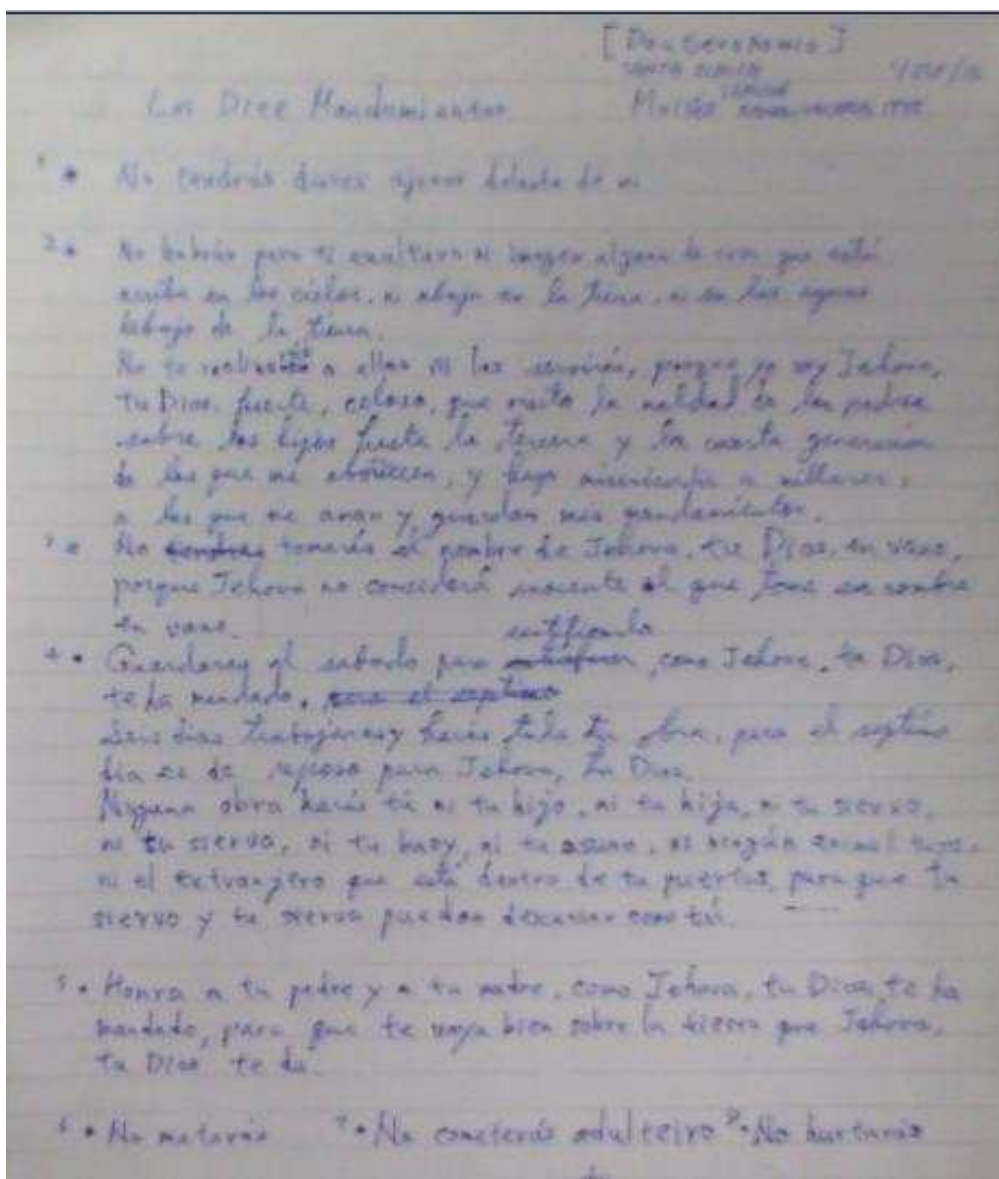 [Deuteronomio]
SANTA BIBLIA
Los Diez Mandamientos
Moisés REINA-VALERA 1995
1 • No tendrás dioses ajenos delante de mi
2 • No harás para ti escultura ni imagen alguna de cosa que está
arriba en los cielos, ni abajo en la tierra, ni en las aguas
debajo de la tierra.
No te inclinarás a ellas ni las servirás, porque yo soy Jehova,
tu Dios, fuerte, celoso, que visito la maldad de los padres
sobre los hijos hasta la tercera y la cuarta generación
de los que me aborrecen, y hago misericordia a millares,
a los que me aman y guardan mis mandamientos.
3 • No tomarás el nombre de Jehova, tu Dios, en vano,
porque Jehova no considerá inocente al que tome su nombre
en vano.
santificarlo
4 • Guardaras el sabado para como Jehova, tu Dios,
te ha mandado,
Seis dias trabajaras y harás toda tu obra, pero el septimo
dia es de reposo para Jehova, tu Dios.
Ninguna obra harás tú ni tu hijo, ni tu hija, ni tu siervo,
ni tu sierva, ni tu buey, ni tu asno, ni ningún animal tuyo,
ni el extranjero que está dentro de tu puertas, para que tu
siervo y tu sierva puedan descansar como tú.
5 • Honra a tu padre y a tu madre, como Jehova, tu Dios, te ha
mandado, para que te vaya bien sobre la tierra que Jehova,
tu Dios te da.
6 • No matarás 7 • No cometerás adulteiro 8 • No hurtarás